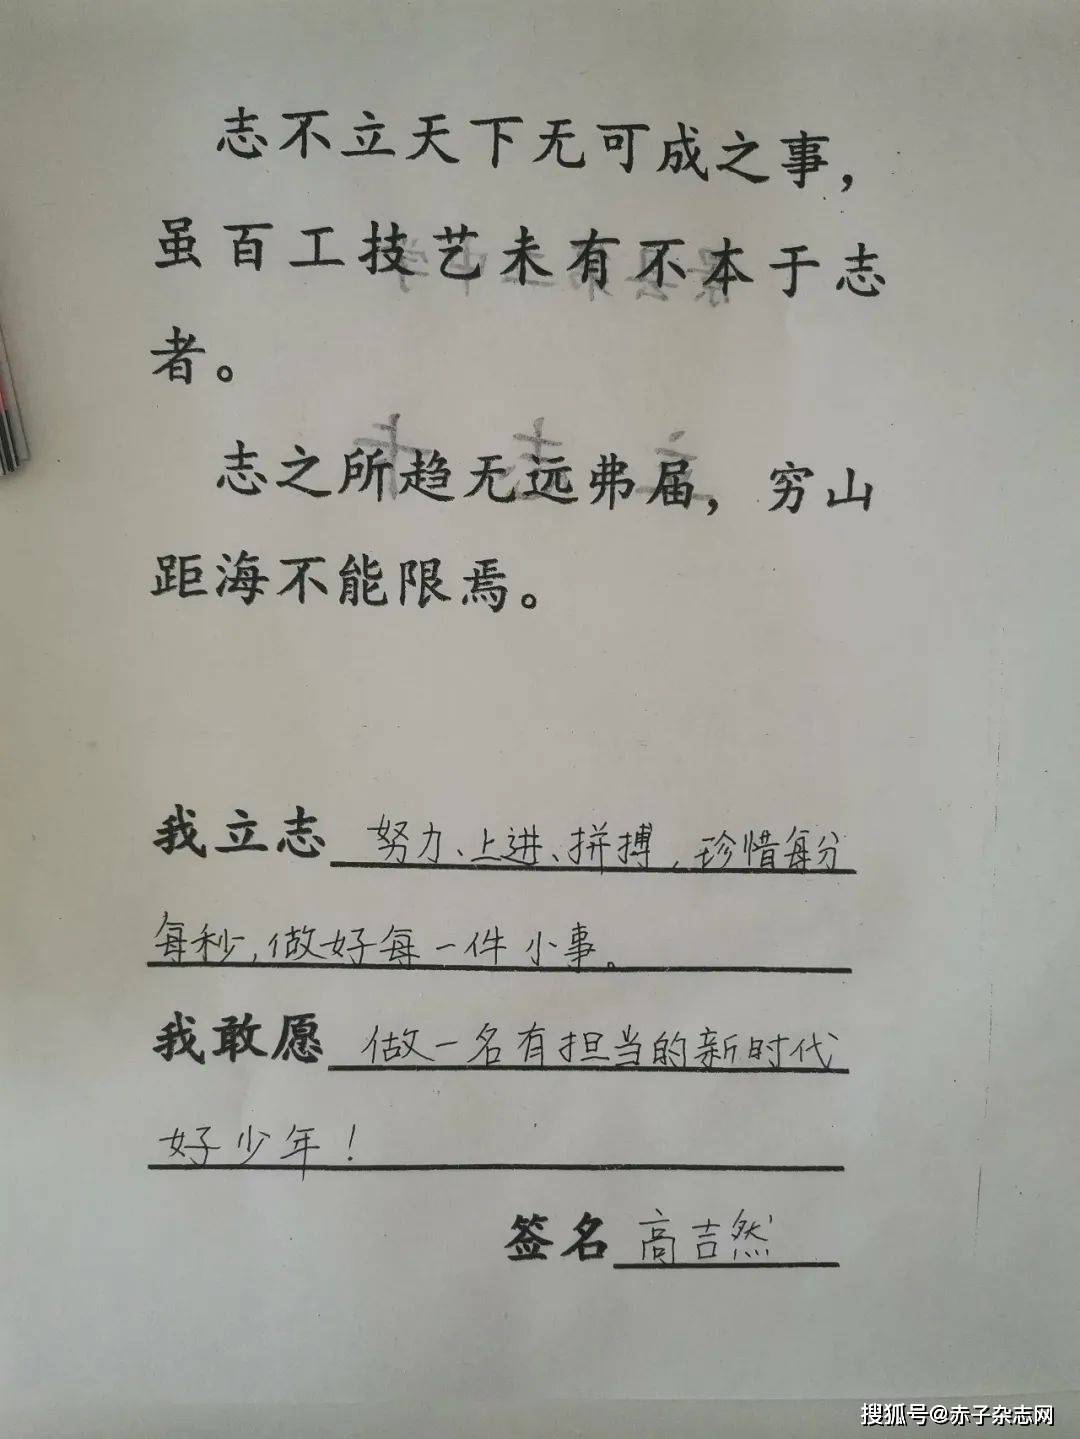 志不立天下无可成之事，
虽百工技艺未有不本于志
者。
志之所趋无远弗届，穷山
距海不能限焉。
我立志 努力、上进、拼搏，珍惜每分
每秒，做好每一件小事。
我敢愿 做一名有担当的新时代
好少年！
签名 高吉然
搜狐号@赤子杂志网